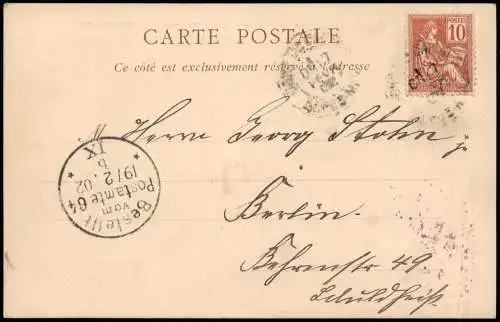 CARTE POSTALE
Ce côté est exclusivement réservé à l'adresse
POSTES
10
Herrn Georg Stohn
Berlin.
Behrenstr 49.
Schultheiss
Bestellt
vom
Postamte 64
19/2.02
IX